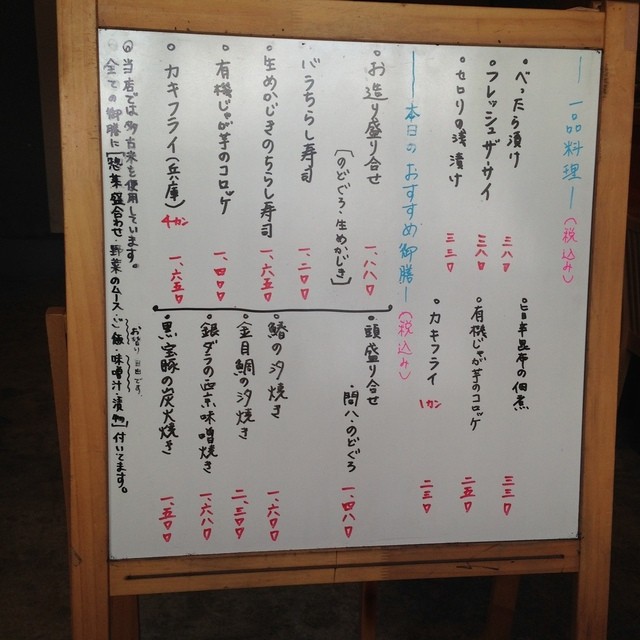 一品料理
(税込み)
・べったら漬け 三八〇
・フレッシュザーサイ 三八〇
・セロリの浅漬け 三三〇
・日高昆布の佃煮 三三〇
・有機じゃが芋のコロッケ 二五〇
・カキフライ 1カン 二三〇
本日のおすすめ御膳
(税込み)
・お造り盛り合せ 一、八八〇
[のどぐろ・生めかじき]
バラちらし寿司 一、二〇〇
・生めかじきのちらし寿司 一、六五〇
・有機じゃが芋のコロッケ 一、四〇〇
・カキフライ(兵庫) 4カン 一、六五〇
・頭盛り合せ
・間八・のどぐろ 一、四八〇
・鰆の汐焼き 一、六〇〇
・金目鯛の汐焼き 二、三〇〇
・銀ダラの西京味噌焼き 一、六八〇
・黒宝豚の炭火焼き 一、五〇〇
◎当店では多古米を使用しています。
全ての御膳に[惣菜盛合わせ・野菜のムース・ご飯・味噌汁・漬物]付いてます。